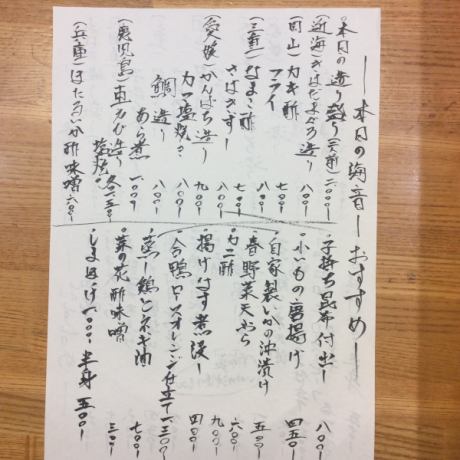 本日の海音 おすすめ
・本日の造り盛り(二人前) 二〇〇〇
(近海)きはだまぐろ造り 八〇〇
(岡山)カキ酢 七〇〇
フライ 八〇〇
(三重)なまこ酢 七〇〇
さばきずし 八〇〇
(愛媛)かんぱち造り 九〇〇
カマ塩焼き 八〇〇
鯛 造り 八〇〇
あら煮 一〇〇〇
(鹿児島)車えび造り
塩焼き 各一二五〇
(兵庫)ほたるいか酢味噌 六〇〇
・子持ち昆布付出し 八〇〇
・小いもの唐揚げ 四五〇
・自家製いかの沖漬け 五〇〇
・春野菜天ぷら
・カニ酢 九〇〇
・揚げなす煮浸し 四〇〇
・合鴨ロースオレンジ仕立て 一三〇〇
・蒸し鶏とネギ油 七〇〇
・菜の花酢味噌
・しまほっけ 一〇〇〇 半身 五〇〇